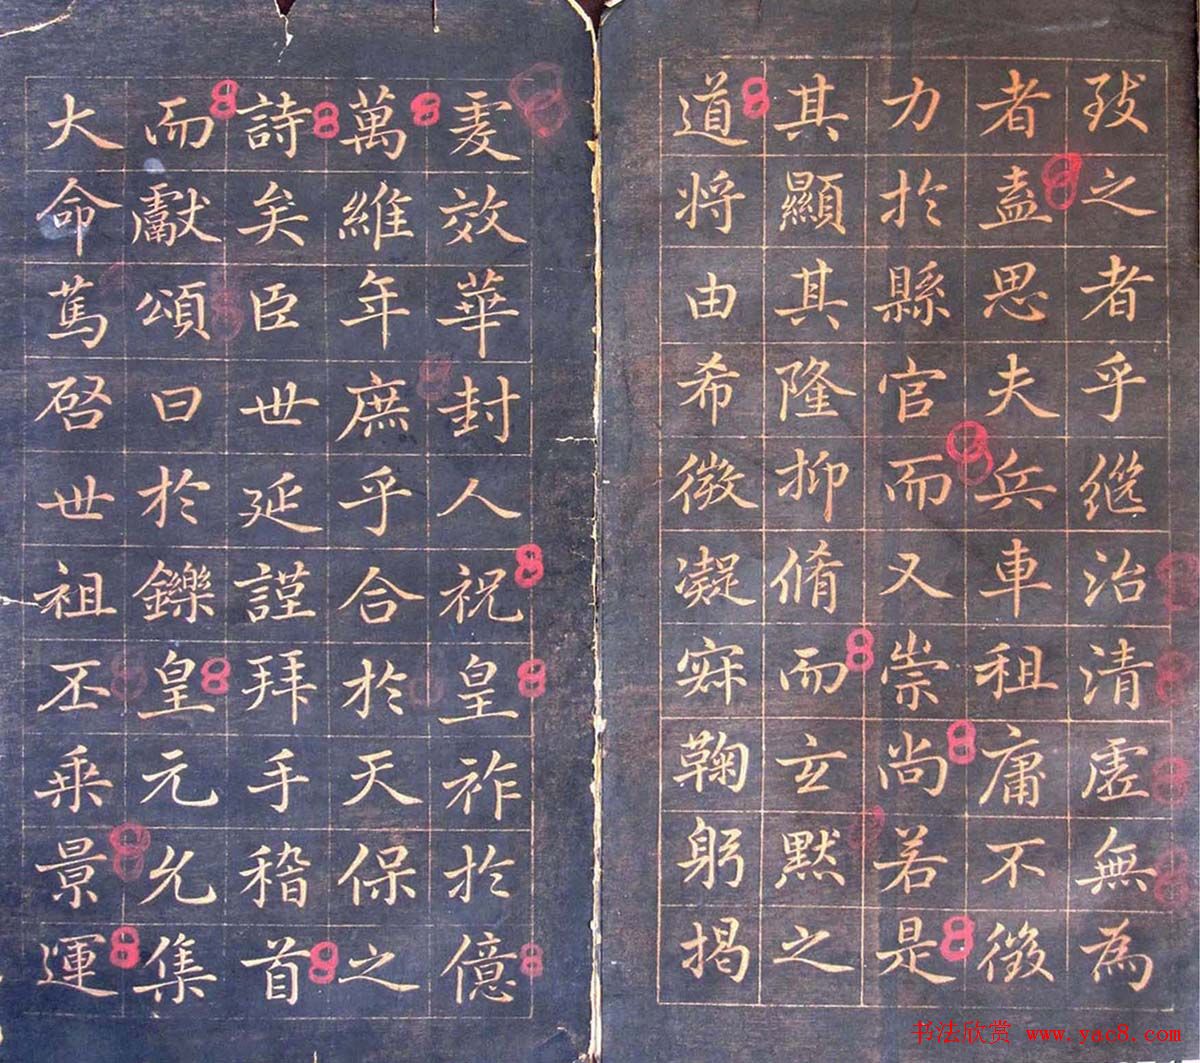 致之者乎继治清虛無為
者盍思夫兵車租庸不徵
力於縣官而又崇尚若是
其顯其隆抑脩而玄默之
道將由希微凝寂鞠躬揭
虔效華封人祝皇祚於億
萬維年庶乎合於天保之
詩矣臣世延謹拜手稽首
而獻頌曰於鑠皇元允集
大命篤啓世祖丕乘景運
书法欣赏 www.yac8.com